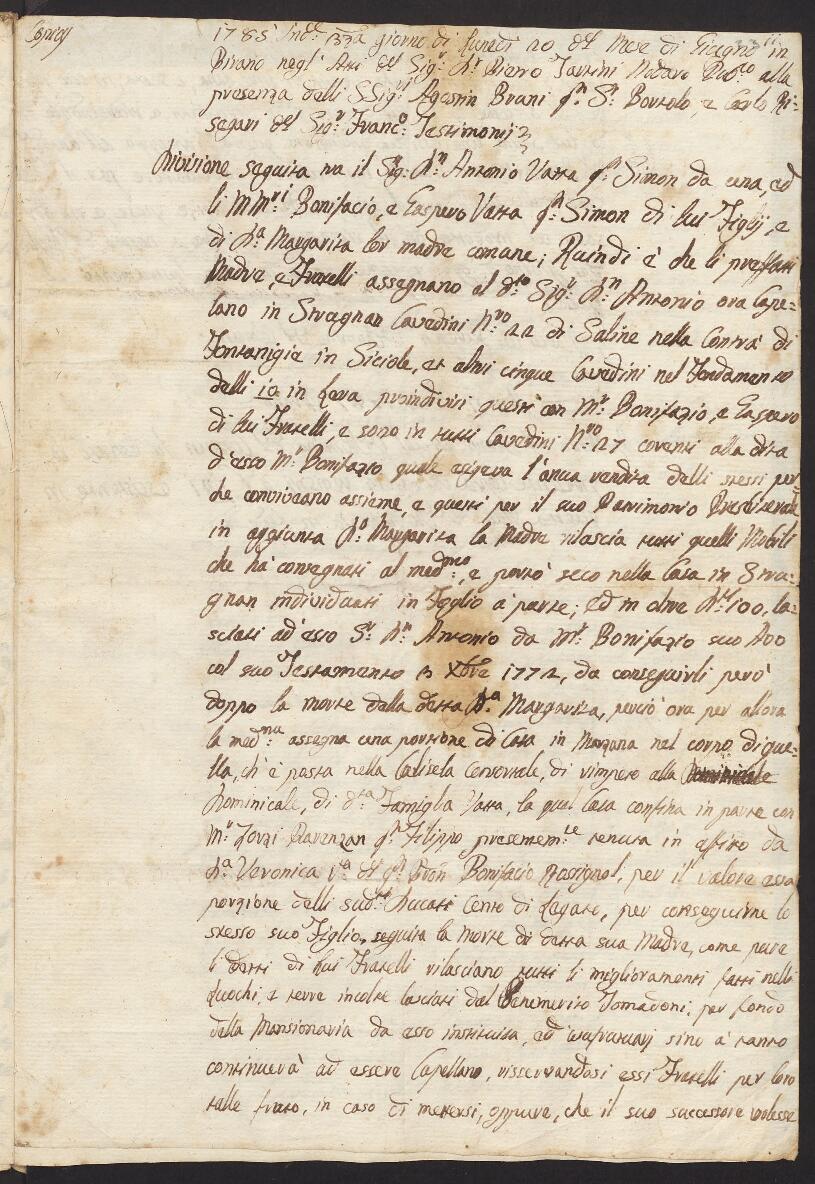 Copia
1785 Ind.e 3.za giorno di Lunedì 20 del Mese di Giugno in
Pirano negl' Atti del Sig.r D.r Pietro Tartini Nodaro Pub.co alla
presenza delli SSig.ri Agostin Bruni q.m S.r Bortolo, e Carlo Ri-
segari del Sig.r Franc.o Testimonij
Divisione seguita tra il Sig.r D.n Antonio Vatta q.m Simon da una, ed
li MM.ri Bonifacio, e Gasparo Vatta q.m Simon di lui Figlij, e
di D.a Margarita lor madre comune; Quindi è che li preffati
Madre, e Fratelli assegnano al d.to Sig.r D.n Antonio ora Cape-
lano in Strugnan Cavedini N.ro 22 di Saline nella Contrà di
Fontanigie in Siciole, et altri cinque Cavedini nel Fondamento
delli 10 in Lera proindivisi questi con M.r Bonifazio, e Gasparo
di lui Fratelli, e sono in tutti Cavedini N.ro 27 corenti alla dita
d'esso M.r Bonifazio quale esigeva l'anua rendita delli stessi per
che conviveano assieme, e questi per il suo Patrimonio
in aggiunta D.a Margarita la Madre rilascia tutti quelli Mobili
che ha consegnati al med.mo, e portò seco nella Casa in Stru-
gnan individuati in Foglio a parte; ed in oltre D.ti 100, la-
sciati ad' esso S.r D.n Antonio da M.r Bonifazio suo Avo
col suo Testamento Xbre 1772, da conseguirli però
doppo la morte della detta D.a Margarita, perciò ora per allora
la med.ma assegna una portione di Casa in Marzana nel corpo di que-
lla, ch'è posta nella Calisela Consortale, di rimpeto alla
Dominicale, di d.ta Famiglia Vatta, la qual Casa confina in parte con
M.r Zorzi Ravenzan q.m Filippo presentem.te tenuta in affito da
D.a Veronica r.ta del q.m Bonifacio Rossignol, per il valore essa
porzione delli sud.ti Ducati Cento di Legato, per conseguirne lo
stesso suo Figlio, seguita la morte di detta sua Madre, come pure
li detti di lui Fratelli rilasciano tutti li miglioramenti fatti nelli
Luochi, e terre incolte lasciati dal Benemerito Tomadoni, per fondo
della Mansionaria da esso instituita, ed usufrutuarj sino a tanto
continuerà ad essere Capellano, risservandosi essi Fratelli per loro
talle fruto, in caso di mettersi, oppure, che il suo successore volesse